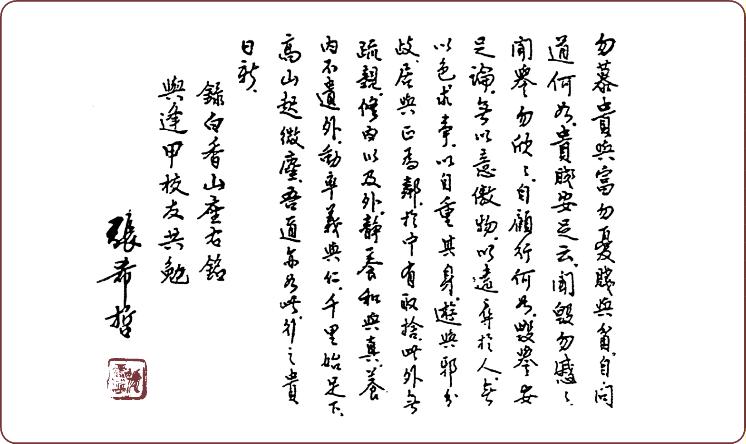 勿慕貴與富勿憂賤與貧自問
道何如貴賤安足云聞毀勿慼々
聞譽勿欣々自顧行何如毀譽安
足論無以意傲物以遠辱於人無
以色求事以自重其身遊與邪分
歧居與正為鄰於中有取捨此外無
疏親修內以及外靜養和與真養
內不遺外動率義與仁千里始足下
高山起微塵吾道亦如此行之貴
日新
錄白香山座右銘
與逢甲校友共勉
張希哲